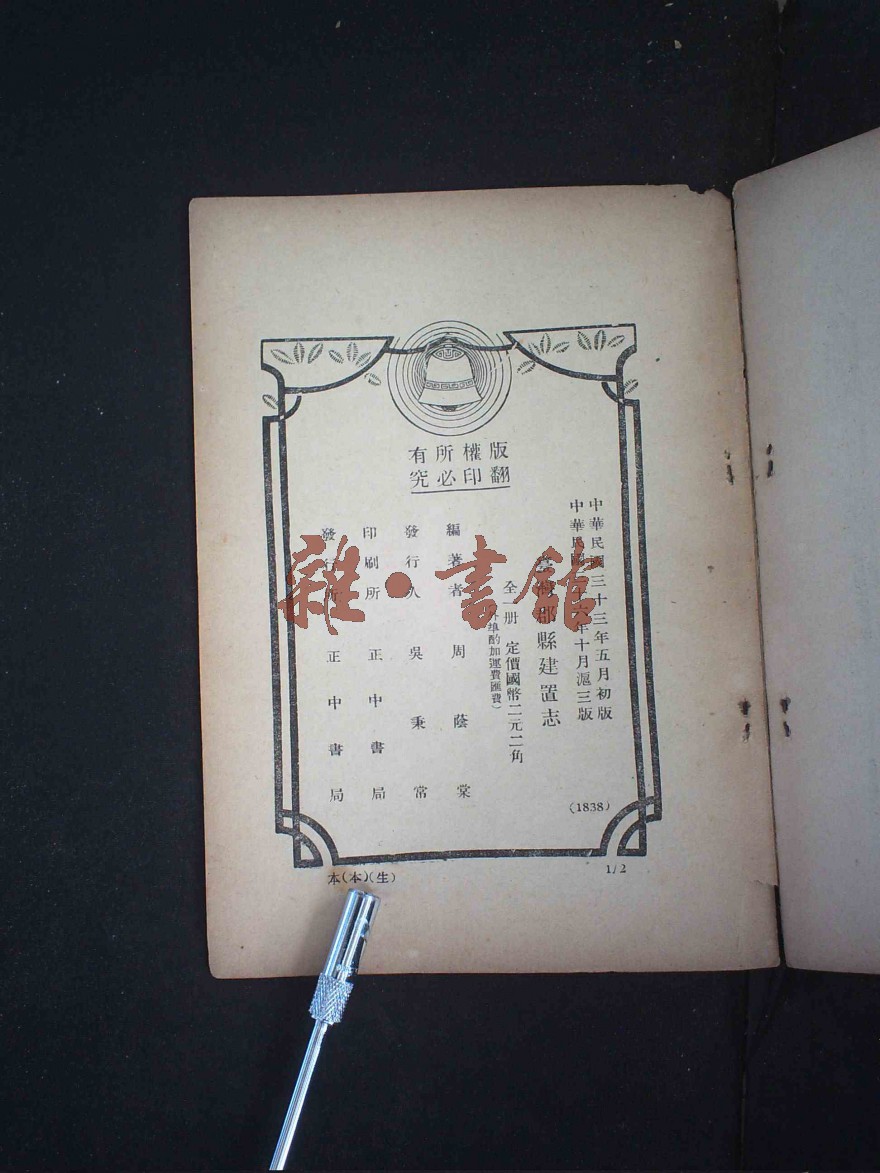 版權所有
翻印必究
中華民國三十三年五月初版
中華民國 年六年十月滬三版
臺灣郡縣建置志
全一册 定價國幣二元二角
外埠酌加運費匯費）
編著者 周蔭棠
發行人 吳秉常
印刷所 正中書局
發行所 正中書局
(1838)
本(本)(生)
1/2
雜·書館